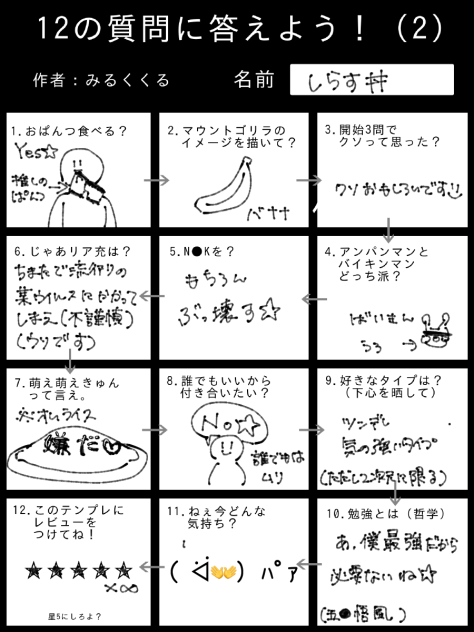 12の質問に答えよう！（2）
作者：みるくくる
名前 しらす丼
1.おぱんつ食べる？
Yes☆
推しの
ぱんつ
2.マウントゴリラの
イメージを描いて？
バナナ
3.開始3問で
クソって思った？
クソおもしろいです
4.アンパンマンと
バイキンマン
どっち派？
ばいきん
うろ →
5.N●Kを？
もちろん
ぶっ壊す☆
6.じゃあリア充は？
ちまたで流行りの
某ウイルスにかかって
しまえ(不謹慎)
(ウソです)
7.萌え萌えきゅん
って言え。
※オムライス
嫌だ♡
8.誰でもいいから
付き合いたい？
No☆
誰でもは
ムリ
9.好きなタイプは？
（下心を晒して）
ツンデレ
気の強いタイプ
(ただし2次元に限る)
10.勉強とは（哲学）
あ,僕最強だから
必要ないね☆
(五●悟風)
11.ねぇ今どんな
気持ち？
( ᐛ👐) ﾊﾟｧ
12.このテンプレに
レビューを
つけてね！
★★★★★
×∞
星5にしろよ？